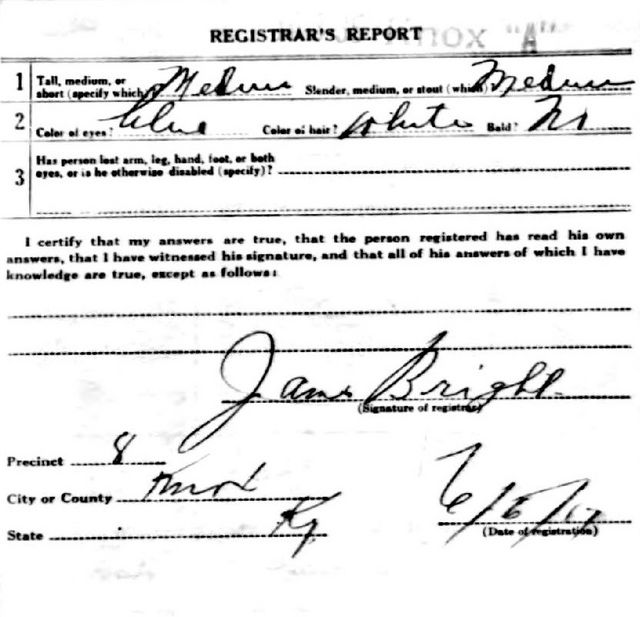 REGISTRAR'S REPORT "A"
1 Tall, medium, or short (specify which) Medium Slender, medium, or stout (which) Medium
2 Color of eyes? blue Color of hair? White Bald? No
3 Has person lost arm, leg, hand, foot, or both
eyes, or is he otherwise disabled (specify)?
I certify that my answers are true, that the person registered has read his own
answers, that I have witnessed his signature, and that all of his answers of which I have
knowledge are true, except as follows:
James Bright
(Signature of registrar)
Precinct 8
City or County Knox
State Ky.
6/5/17
(Date of registration)